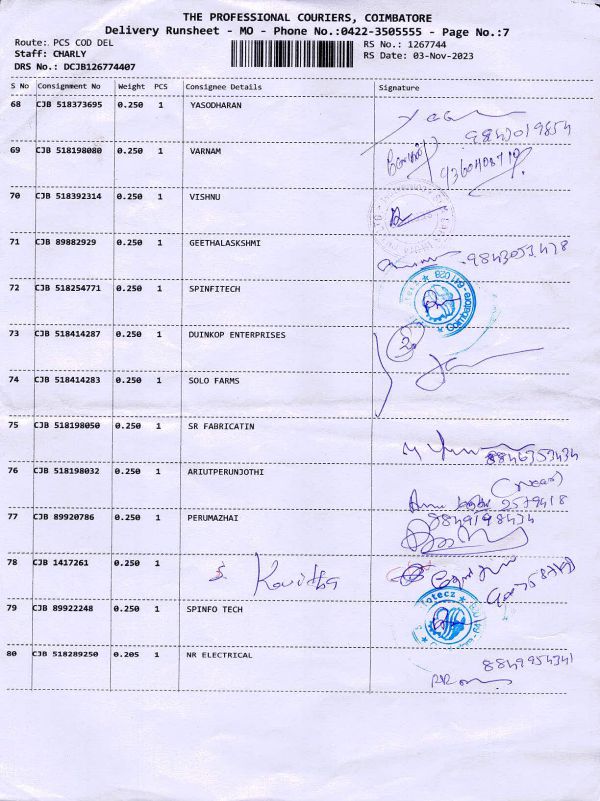 THE PROFESSIONAL COURIERS, COIMBATORE
Delivery Runsheet - MO - Phone No.:0422-3505555 - Page No.:7
Route: PCS COD DEL RS No.: 1267744
Staff: CHARLY RS Date: 03-Nov-2023
DRS No.: DCJB126774407
S No Consignment No Weight PCS Consignee Details Signature
68 CJB 518373695 0.250 1 YASODHARAN
9843019854
69 CJB 518198080 0.250 1 VARNAM
70 CJB 518392314 0.250 1 VISHNU
71 CJB 89882929 0.250 1 GEETHALASKSHMI
72 CJB 518254771 0.250 1 SPINFITECH
Coimbatore
73 CJB 518414287 0.250 1 DUINKOP ENTERPRISES
74 CJB 518414283 0.250 1 SOLO FARMS
75 CJB 518198050 0.250 1 SR FABRICATIN
76 CJB 518198032 0.250 1 ARIUTPERUNJOTHI
77 CJB 89920786 0.250 1 PERUMAZHAI
78 CJB 1417261 0.250 1 Kavitha
79 CJB 89922248 0.250 1 SPINFO TECH
80 CJB 518289250 0.205 1 NR ELECTRICAL
8849954341